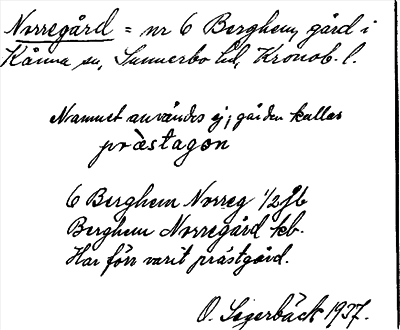 Norregård = nr 6 Berghem, gård i
Kånna sn, Sunnerbo hd, Kronob. l.
Namnet användes ej; gården kallas
prästagon
6 Berghem Norreg 1/2 fb
Berghem Norregård kb.
Har förr varit prästgård.
O. Segerbäck 1937.